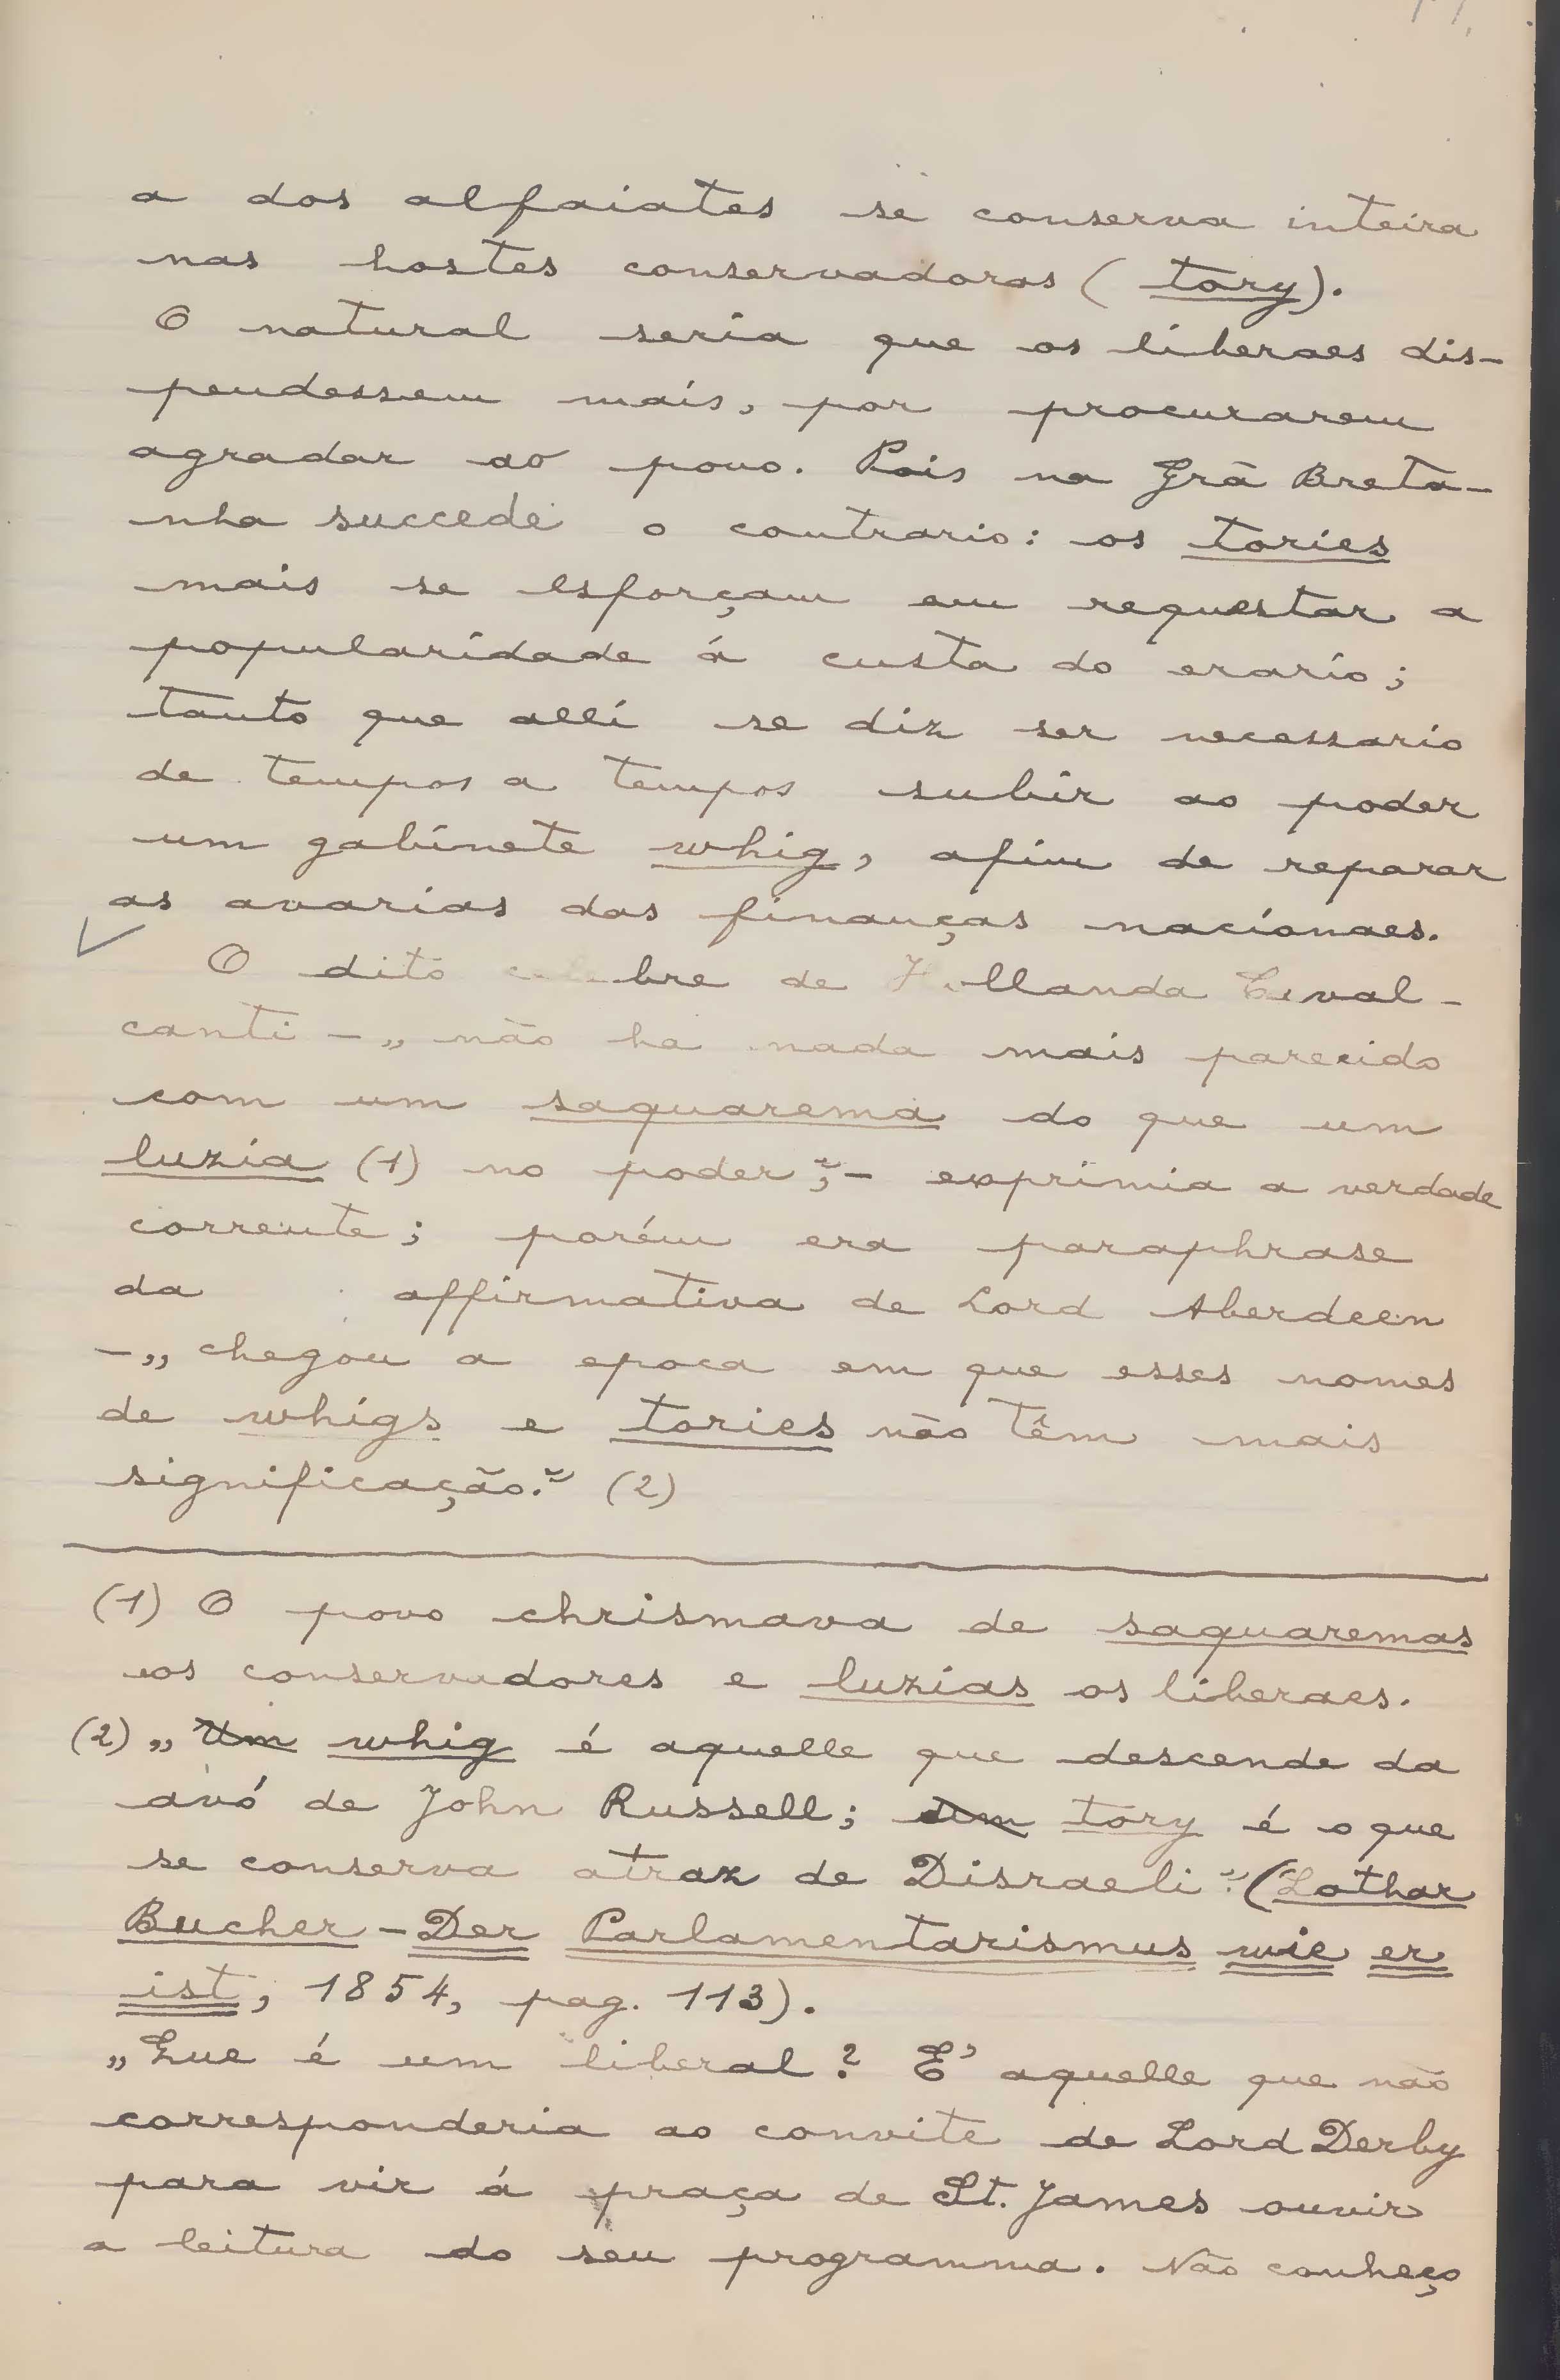 a dos alfaiates se conserva inteira
nas hostes conservadoras (tory).
O natural seria que os liberaes dis-
pendessem mais, por procurarem
agradar ao povo. Pois na Grã Breta-
nha succede o contrario: os tories
mais se esforçam em requestar a
popularidade á custa do erario;
tanto que alli se diz ser necessario
de tempos a tempos subir ao poder
um gabinete whig, afim de reparar
as avarias das finanças nacionaes.
O dito celebre de Hollanda Caval-
canti – „ não ha nada mais parecido
com um saquarema do que um
luzia (1) no poder”; – exprimia a verdade
corrente; porém era paraphrase
da affirmativa de Lord Aberdeen
– „ chegou a epoca em que esses nomes
de whigs e tories não têm mais
significação.” (2)
(1) O povo chrismava de saquaremas
aos conservadores e luzias os liberaes.
(2) „ Um whig é aquelle que descende da
avó de John Russell; um tory é o que
se conserva atraz de Disraeli”. (Lothar
Bucher – Der Parlamentarismus wie er
ist, 1854, pag. 113).
„ Que é um liberal? E' aquelle que não
corresponderia ao convite de Lord Derby
para vir á praça de St. James ouvir
a leitura do seu programma. Não conheço